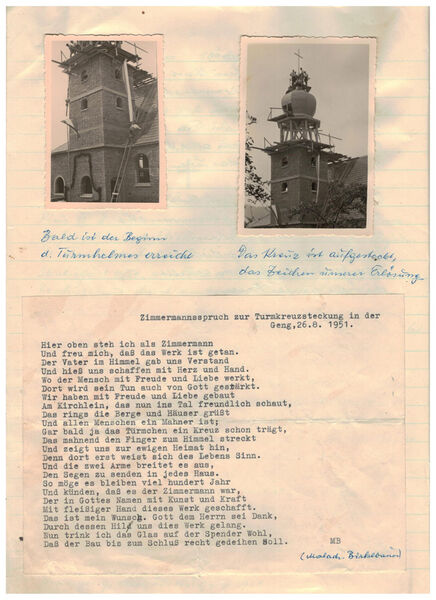 Bald ist der Beginn
d. Turmhelmes erreicht
Das Kreuz ist aufgesteckt,
das Zeichen unserer Erlösung
Zimmermannsspruch zur Turmkreuzsteckung in der
Geng,26.8. 1951.
Hier oben steh ich als Zimmermann
Und freu mich, daß das Werk ist getan.
Der Vater im Himmel gab uns Verstand
Und hieß uns schaffen mit Herz und Hand.
Wo der Mensch mit Freude und Liebe werkt,
Dort wird sein Tun auch von Gott gestärkt.
Wir haben mit Freude und Liebe gebaut
Am Kirchlein, das nun ins Tal freundlich schaut,
Das rings die Berge und Häuser grüßt
Und allen Menschen ein Mahner ist;
Gar bald ja das Türmchen ein Kreuz schon trägt,
Das mahnend den Finger zum Himmel streckt
Und zeigt uns zur ewigen Heimat hin,
Denn dort erst weist sich des Lebens Sinn.
Und die zwei Arme breitet es aus,
Den Segen zu senden in jedes Haus.
So möge es bleiben viel hundert Jahr
Und künden, daß es der Zimmermann war,
Der in Gottes Namen mit Kunst und Kraft
Mit fleißiger Hand dieses Werk geschafft.
Das ist mein Wunsch. Gott dem Herrn sei Dank,
Durch dessen Hilf uns dies Werk gelang.
Nun trink ich das Glas auf der Spender Wohl,
Daß der Bau bis zum Schluß recht gedeihen soll.
MB